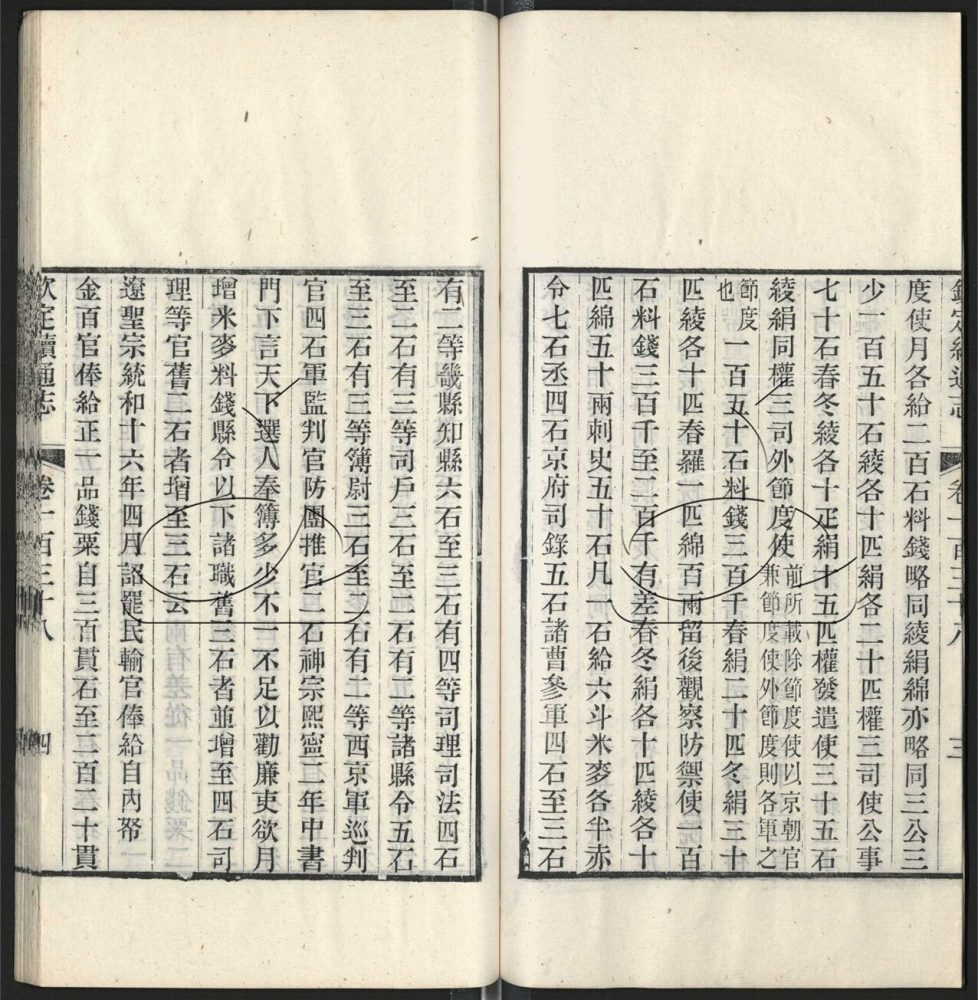 欽定續通志 卷一百三十八 三
度使月各給二百石料錢略同綾絹綿亦略同三公三
少一百五十石綾各十匹絹各二十匹權三司使公事
七十石春冬綾各十疋絹十五匹權發遣使三十五石
綾絹同權三司外節度使前所載除節度使以京朝官兼節度使外節度則各軍之
節度也一百五十石料錢三百千春絹二十匹冬絹三十
匹綾各十匹春羅一匹綿百兩留後觀察防禦使一百
石料錢三百千至二百千有差春冬絹各十匹綾各十
匹綿五十兩刺史五十石凡一石給六斗米麥各半赤
令七石丞四石京府司錄五石諸曹參軍四石至三石
有二等畿縣知縣六石至三石有四等司理司法四石
至三石有三等司戶三石至二石有二等諸縣令五石
至三石有三等簿尉三石至二石有二等西京軍巡判
官四石軍監判官防團推官二石神宗熙寧二年中書
門下言天下選人奉簿多少不一不足以勸廉吏欲月
增米麥料錢縣令以下諸職舊三石者並增至四石司
理等官舊二石者增至三石云
遼聖宗統和十六年四月詔罷民輸官俸給自內帑
金百官俸給正一品錢粟自三百貫石至二百二十貫
欽定續通志 卷一百三十八 四